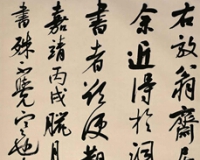 右放翁齋
余近得於洞
書者
嘉靖丙戌臘月
書殊不覺